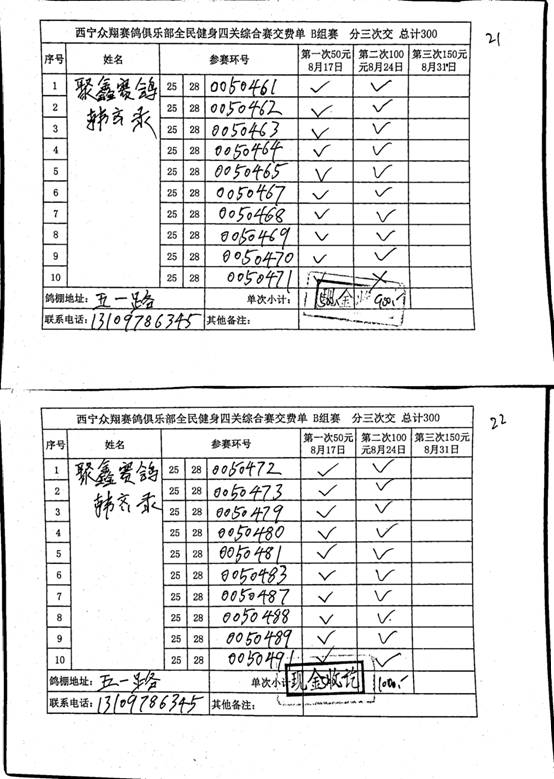 西宁众翔赛鸽俱乐部全民健身四关综合赛交费单 B组赛 分三次交 总计300
21
序号 姓名 参赛环号 第一次50元8月17日 第二次100元8月24日 第三次150元8月31日
1 聚鑫赛鸽 25 28 0050461 ✓ ✓
2 韩玄录 25 28 0050462 ✓ ✓
3 25 28 0050463 ✓ ✓
4 25 28 0050464 ✓ ✓
5 25 28 0050465 ✓ ✓
6 25 28 0050467 ✓ ✓
7 25 28 0050468 ✓ ✓
8 25 28 0050469 ✓ ✓
9 25 28 0050470 ✓ ✓
10 25 28 0050471 ✓ ✗
鸽棚地址: 五一路 单次小计: 500 现金收 900
联系电话: 13109786345 其他备注:
西宁众翔赛鸽俱乐部全民健身四关综合赛交费单 B组赛 分三次交 总计300
22
序号 姓名 参赛环号 第一次50元8月17日 第二次100元8月24日 第三次150元8月31日
1 聚鑫赛鸽 25 28 0050472 ✓ ✓
2 韩玄录 25 28 0050473 ✓ ✓
3 25 28 0050479 ✓ ✓
4 25 28 0050480 ✓ ✓
5 25 28 0050481 ✓ ✓
6 25 28 0050483 ✓ ✓
7 25 28 0050487 ✓ ✓
8 25 28 0050488 ✓ ✓
9 25 28 0050489 ✓ ✓
10 25 28 0050491 ✓ ✓
鸽棚地址: 五一路 单次小计 现金收讫 1000
联系电话: 13109786345 其他备注: